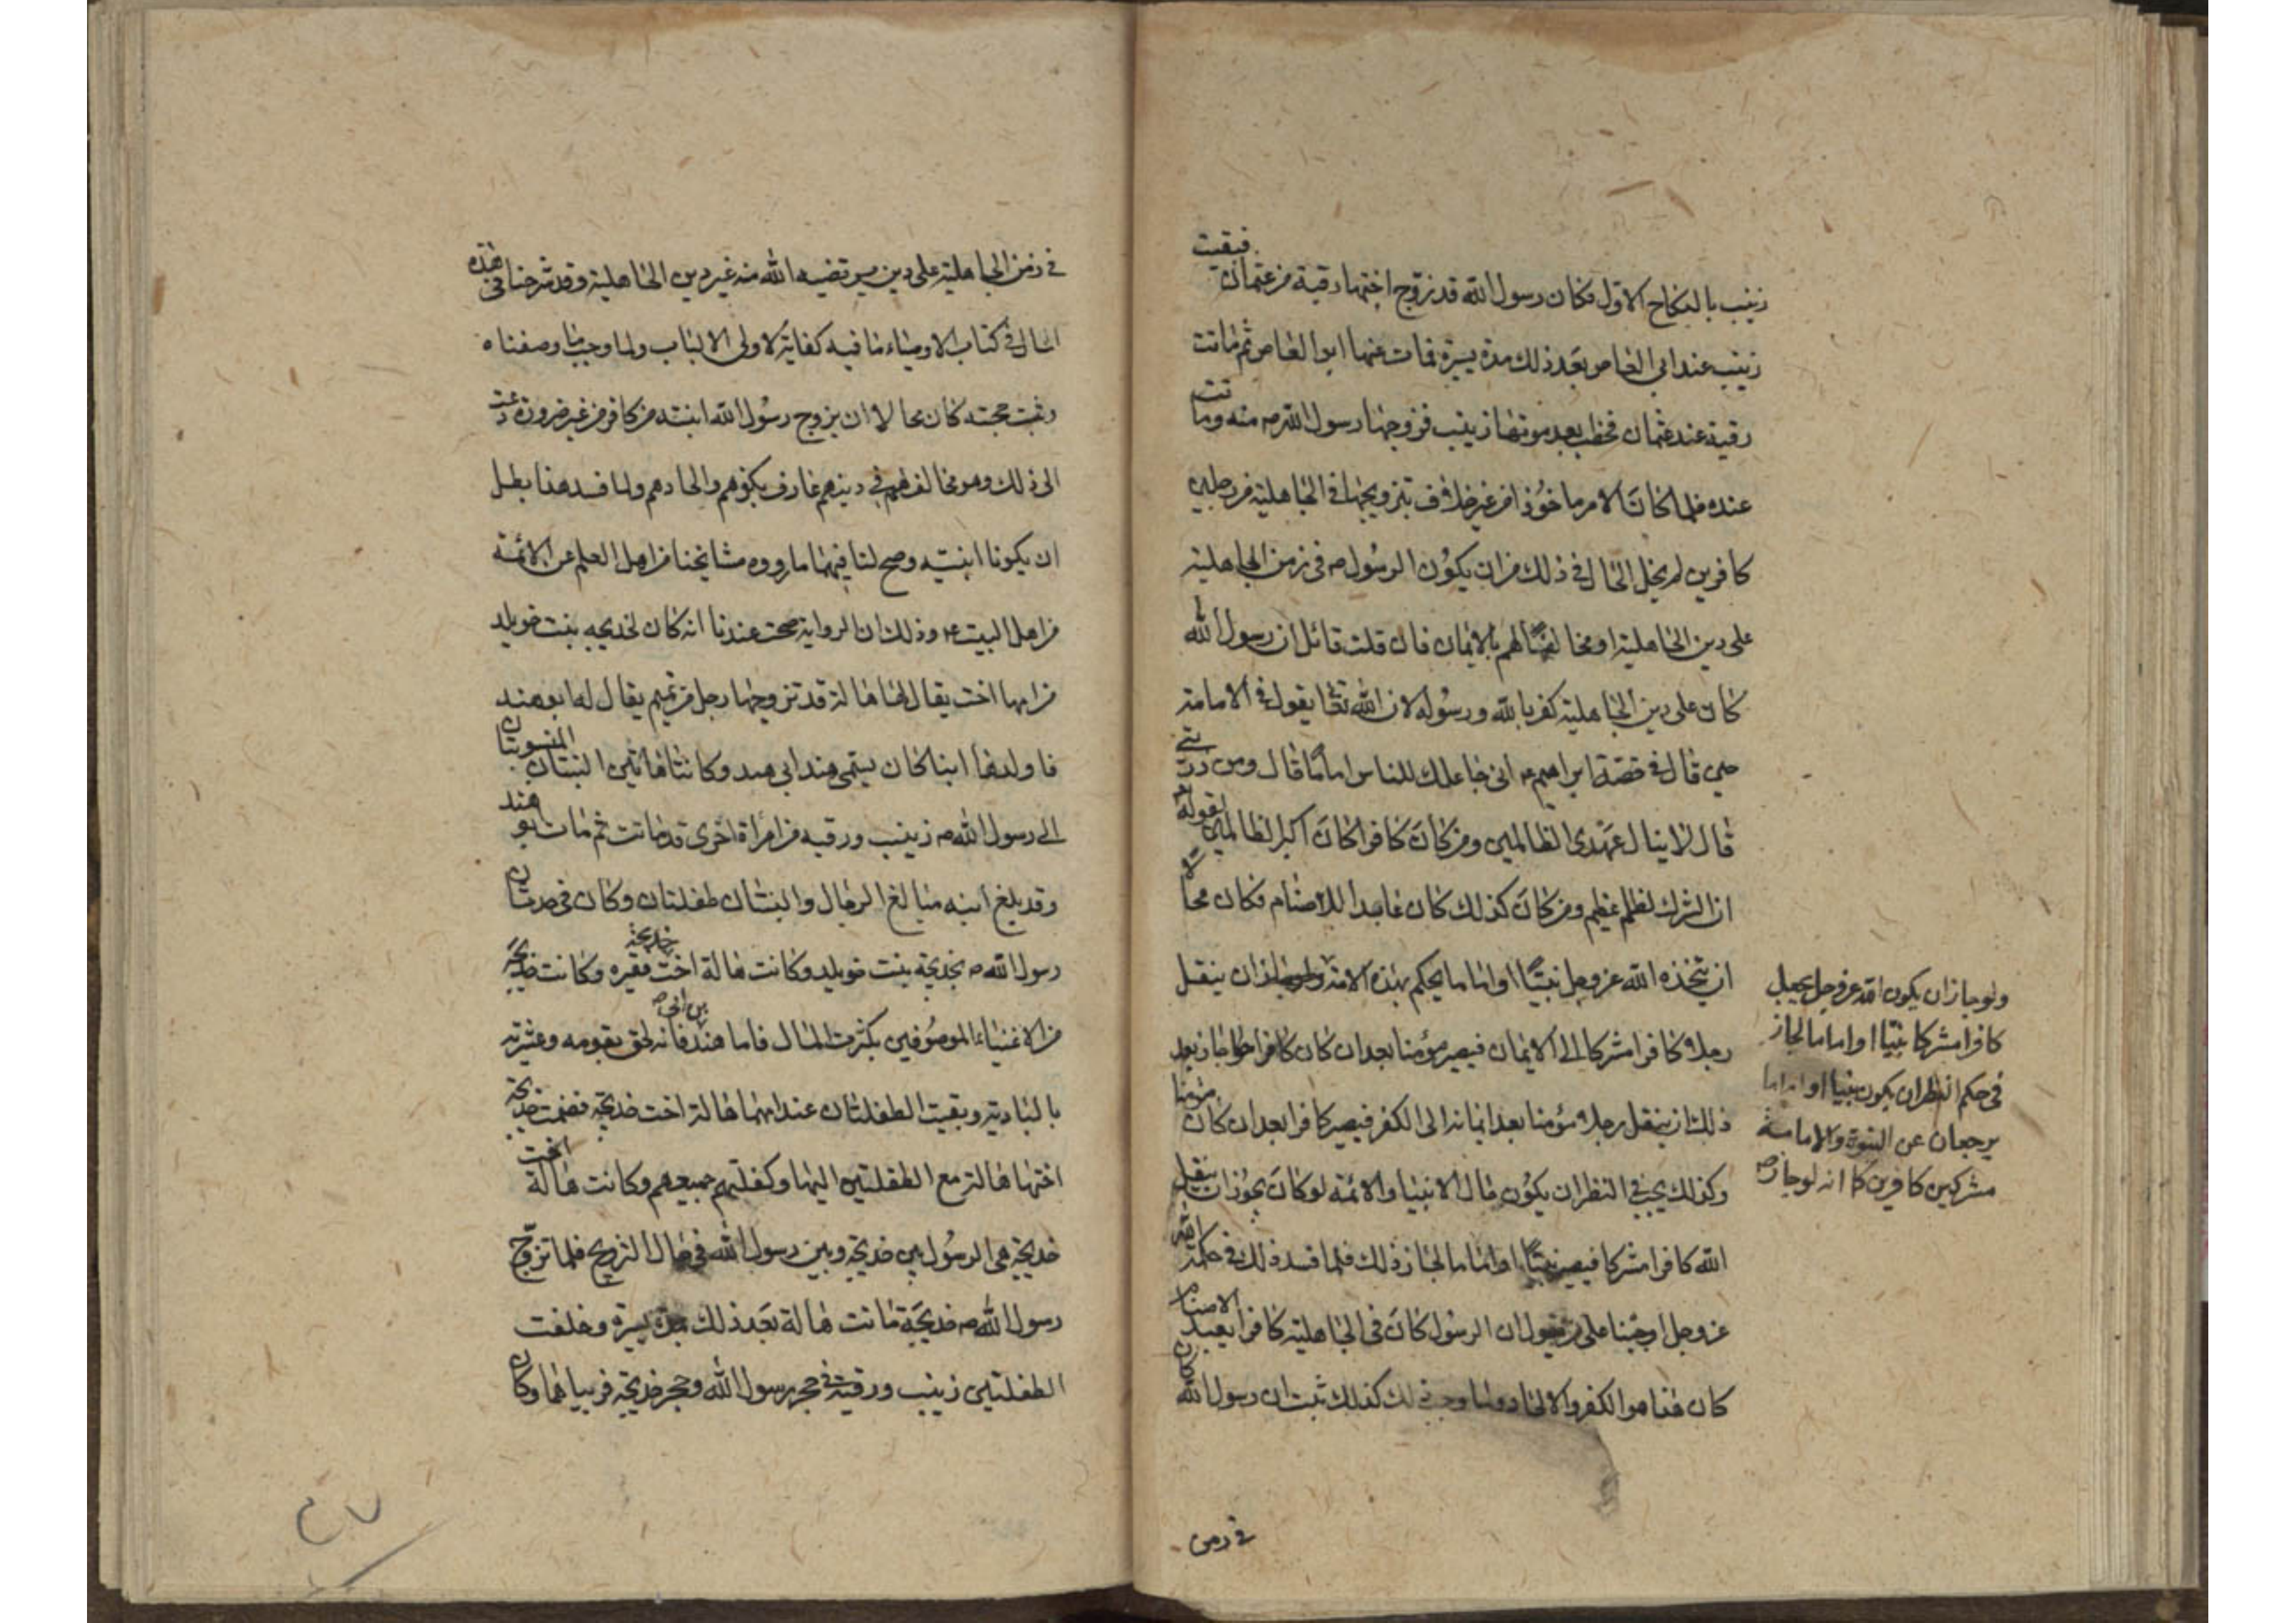 زينب بالنكاح الاول فكان رسول الله قد زوج اختها رقية من عثمان فبقيت
زينب عند ابى العاص بعد ذلك مدة يسيرة فمات عنها ابو العاص ثم ماتت
رقية عند عثمان فخطب بعد موتها زينب فزوجها رسول الله ص منه وماتت
عنده فلما كان الامر ماخوذا من غير خلاف تزويجها فى الجاهلية من رجلين
كافرين لم يخل الحال فى ذلك من ان يكون الرسول ص فى زمن الجاهلية
على دين الجاهلية او مخالفا لهم بالايمان فان قلت قائل ان رسول الله
كان على دين الجاهلية كفر بالله ورسوله لان الله تعا يقول فى الامامة
حين قال فى قصة ابراهيم ع انى جاعلك للناس اماما قال ومن ذريتى
قال لا ينال عهدى الظالمين ومن كان كافرا كان اكبر الظالمين لقوله تع
ان الشرك لظلم عظيم ومن كان كذلك كان عابدا للاصنام فكان محالا
ان يتخذه الله عز وجل نبيا او اماما يحكم بهذه الامة ان ينقل
رجلا كافرا مشركا الى الايمان فيصير مؤمنا بعد ان كان كافرا جاز بعد
ذلك ان ينقل رجلا مؤمنا بعد ايمانه الى الكفر فيصير كافرا بعد ان كان مؤمنا
وكذلك يجب فى النظر ان يكون حال الانبيا والائمة لو كان يجوز ان ينقل
الله كافرا مشركا فيصير نبيا او اماما لجاز ذلك فلما فسد ذلك فى حكمة الله
عز وجل اوجبنا على من يقول ان الرسول كان فى الجاهلية كافرا يعبد الاصنام
كان هذا هو الكفر والالحاد ولما وجب ذلك كذلك ثبت ان رسول الله كان
فى زمن
ولو جاز ان يكون الله عز وجل يجعل
كافرا مشركا نبيا او اماما لجاز
فى حكم النظر ان يكون نبيا او اماما
يرجعان عن النبوة والامامة
مشركين كافرين كما انه لو جاز ص
فى زمن الجاهلية على دين يرتضيه الله منه غير دين الجاهلية وقد شرحنا فى هذه
الحال فى كتاب الاوصياء ما فيه كفاية لاولى الالباب ولما وجب ما وصفناه
وثبت حجته كان محالا ان يزوج رسول الله ابنته من كافر من غير ضرورة دعت
الى ذلك وهو مخالف لهم فى دينهم عارف بكفرهم والحادهم ولما فسد هذا بطل
ان يكونا ابنتيه وصح لنا فيهما ما رووه مشايخنا من اهل العلم عن الائمة
من اهل البيت ع وذلك ان الرواية صحت عندنا انه كان لخديجه بنت خويلد
من امها اخت يقال لها هالة قد تزوجها رجل من تميم يقال له ابو هند
فاولدها ابنا كان يسمى هند ابى هند وكانتا هاتين البنتان المنسوبتان
الى رسول الله ص زينب ورقيه من امرأة اخرى قد ماتت ثم مات ابو هند
وقد بلغ ابنه مبالغ الرجال والبنتان طفلتان وكان فى حدثان
رسول الله ص بخديجة بنت خويلد وكانت هالة اخت خديجة فقيره وكانت خديجة
من الاغنياء الموصوفين بكثرت المال فاما هند بن ابى ص فانه لحق بقومه وعشيرته
بالبادية وبقيت الطفلتان عند امهما هالة اخت خديجة فضمت خديجة
اختها هالة مع الطفلتين اليها وكفلتهم جميعهم وكانت هالة اخت
خديجة هى الرسول بين خديجة وبين رسول الله فى حال التزويج فلما تزوج
رسول الله ص خديجة ماتت هالة بعد ذلك بمدة يسيرة وخلفت
الطفلتين زينب ورقية فى حجر رسول الله وحجر خديجة فربياهما وكان